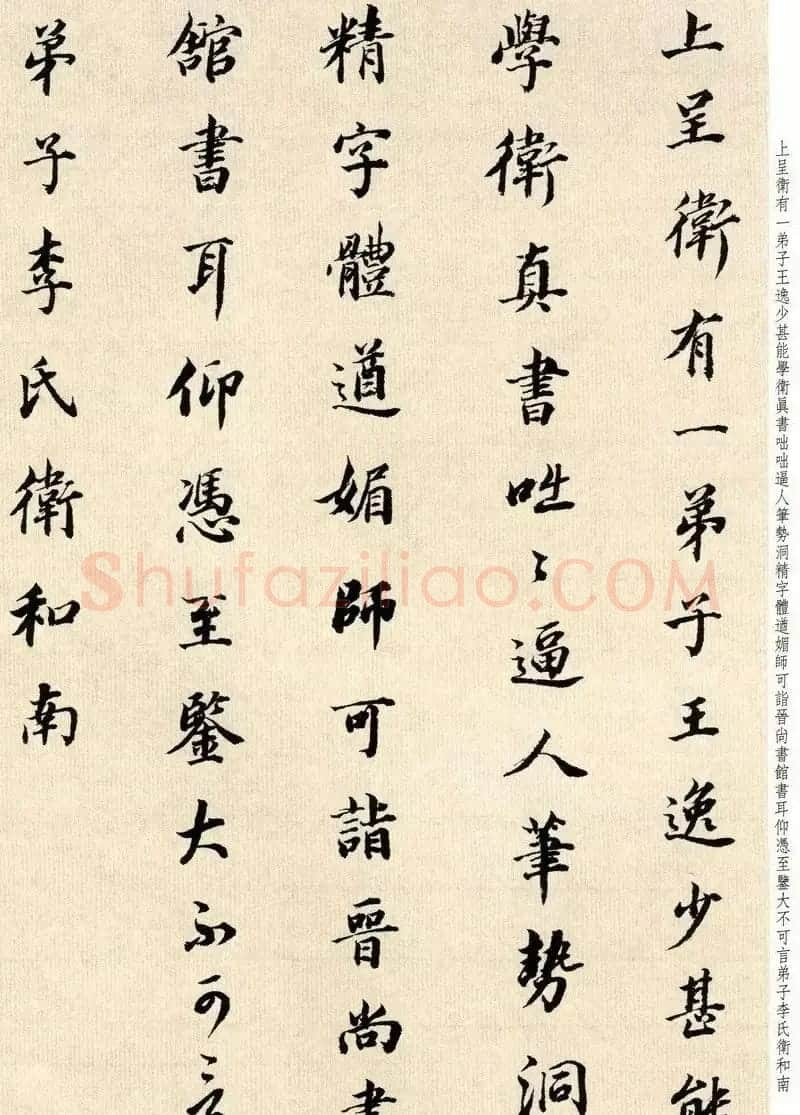 上呈衛有一弟子王逸少甚能
學衛真書咄〻逼人筆勢洞
精字體遒媚師可詣晉尚書
舘書耳仰憑至鑒大不可言
弟子李氏衛和南
上呈衛有一弟子王逸少甚能學衛眞書咄咄逼人筆勢洞精字體遒媚師可詣晉尚書館書耳仰憑至鑒大不可言弟子李氏衛和南
Shufaziliao.COM